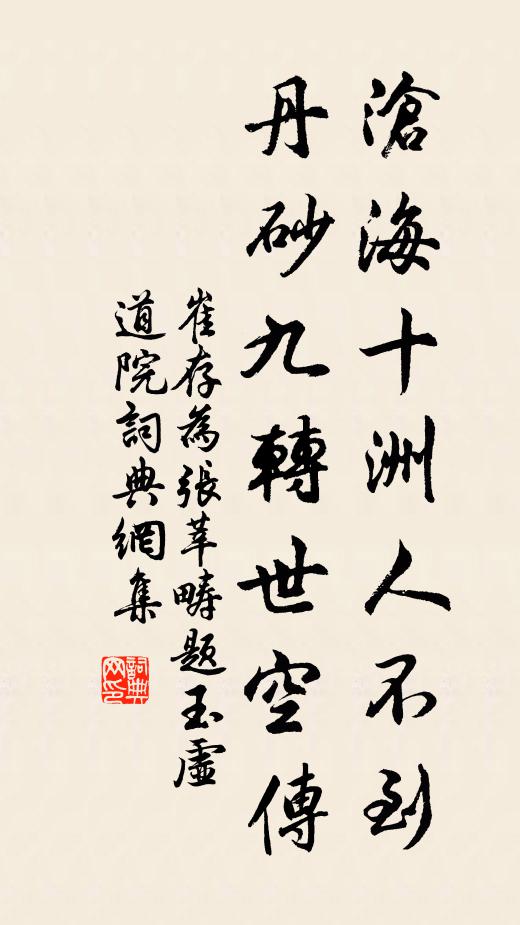 滄海十洲人不到
丹砂九轉世空傳
崔存為張莘疇題玉虛
道院詞典網集
詞典网印